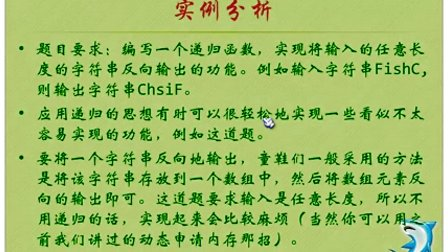 实例分析
• 题目要求：编写一个递归函数，实现将输入的任意长
度的字符串反向输出的功能。例如输入字符串FishC,
则输出字符串ChsiF。
• 应用递归的思想有时可以很轻松地实现一些看似不太
容易实现的功能，例如这道题。
• 要将一个字符串反向地输出，童鞋们一般采用的方法
是将该字符串存放到一个数组中，然后将数组元素反
向的输出即可。这道题要求输入是任意长度，所以不
用递归的话，实现起来会比较麻烦（当然你可以用之
前我们讲过的动态申请内存那招）。